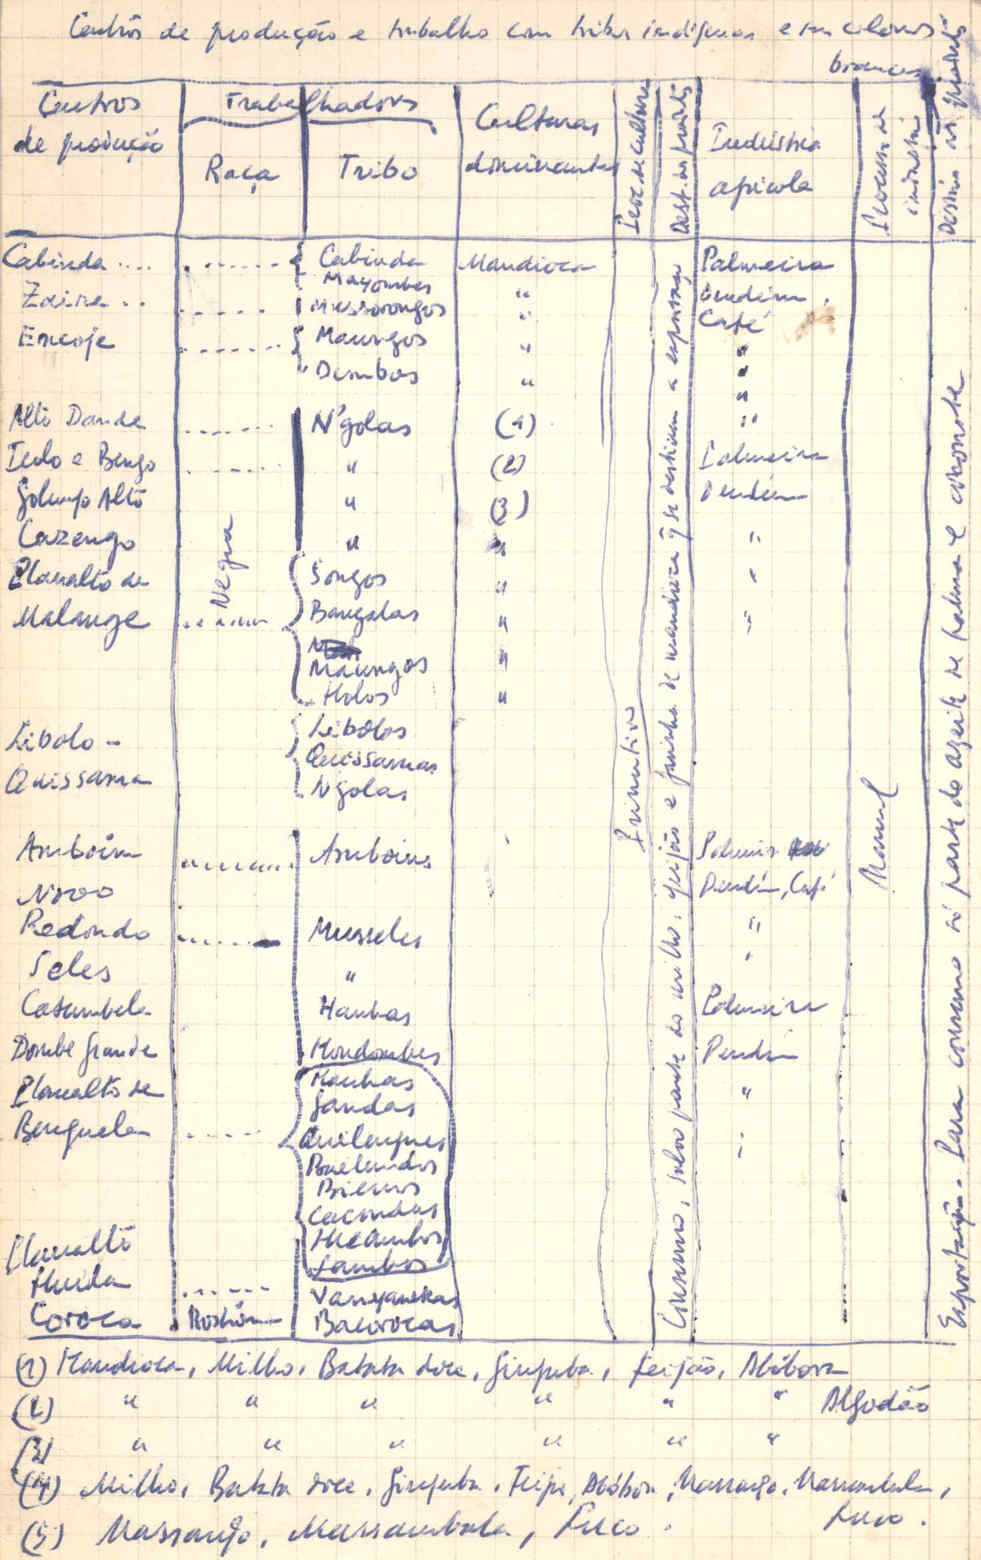 Centros de produção e trabalho com tribos indígenas e com colonos
brancos
Centros de produção
Trabalhadores
Raça
Tribo
Culturas dominantes
Proc. de cultura
Dest. dos produtos
Indústria agrícola
Processo da indústria
Destino dos produtos
Cabinda .... Cabinda Mandioca Palmeira
Mayombes Dendém,
Zaire .. Mussorongos " Café
Encoje Maungos " "
" Dembos " "
Alto Dande N'golas (1) "
Icolo e Bengo " (2) Palmeira
Golungo Alto " (3) Dendém
Cazengo " " "
Planalto de Songos " "
Malange Bangalas " "
Maungos "
Holos "
Negra
Libolo - Libolos
Quissama Quissamas
Ngolas
Amboim Amboins Palmeira
Novo Dendém, Café
Redondo Musseles "
Seles " "
Catumbela Hanhas Palmeira
Dombe Grande Mondombes Dendém
Planalto de Hanhas "
Gandas
Benguela Quilengues "
Bailundos
Bienos
Cacondas
Planalto Hucambos
Huila Sambos
Vanyanekas
Coroca Bacorocas
Primitivo
Consumo, salvo parte do milho, feijão e farinha de mandioca q se destinam a exportação
Manual
Exportação. Para consumo só parte do azeite de palma e coconote
(1) Mandioca, Milho, Batata doce, Ginguba, feijão, Abóbora
(2) " " " " " " Algodão
(3) " " " " " "
(4) Milho, Batata doce, Ginguba, Feijão, Abóbora, Massango, Massambala,
Luco.
(5) Massango, Massambala, Luco.